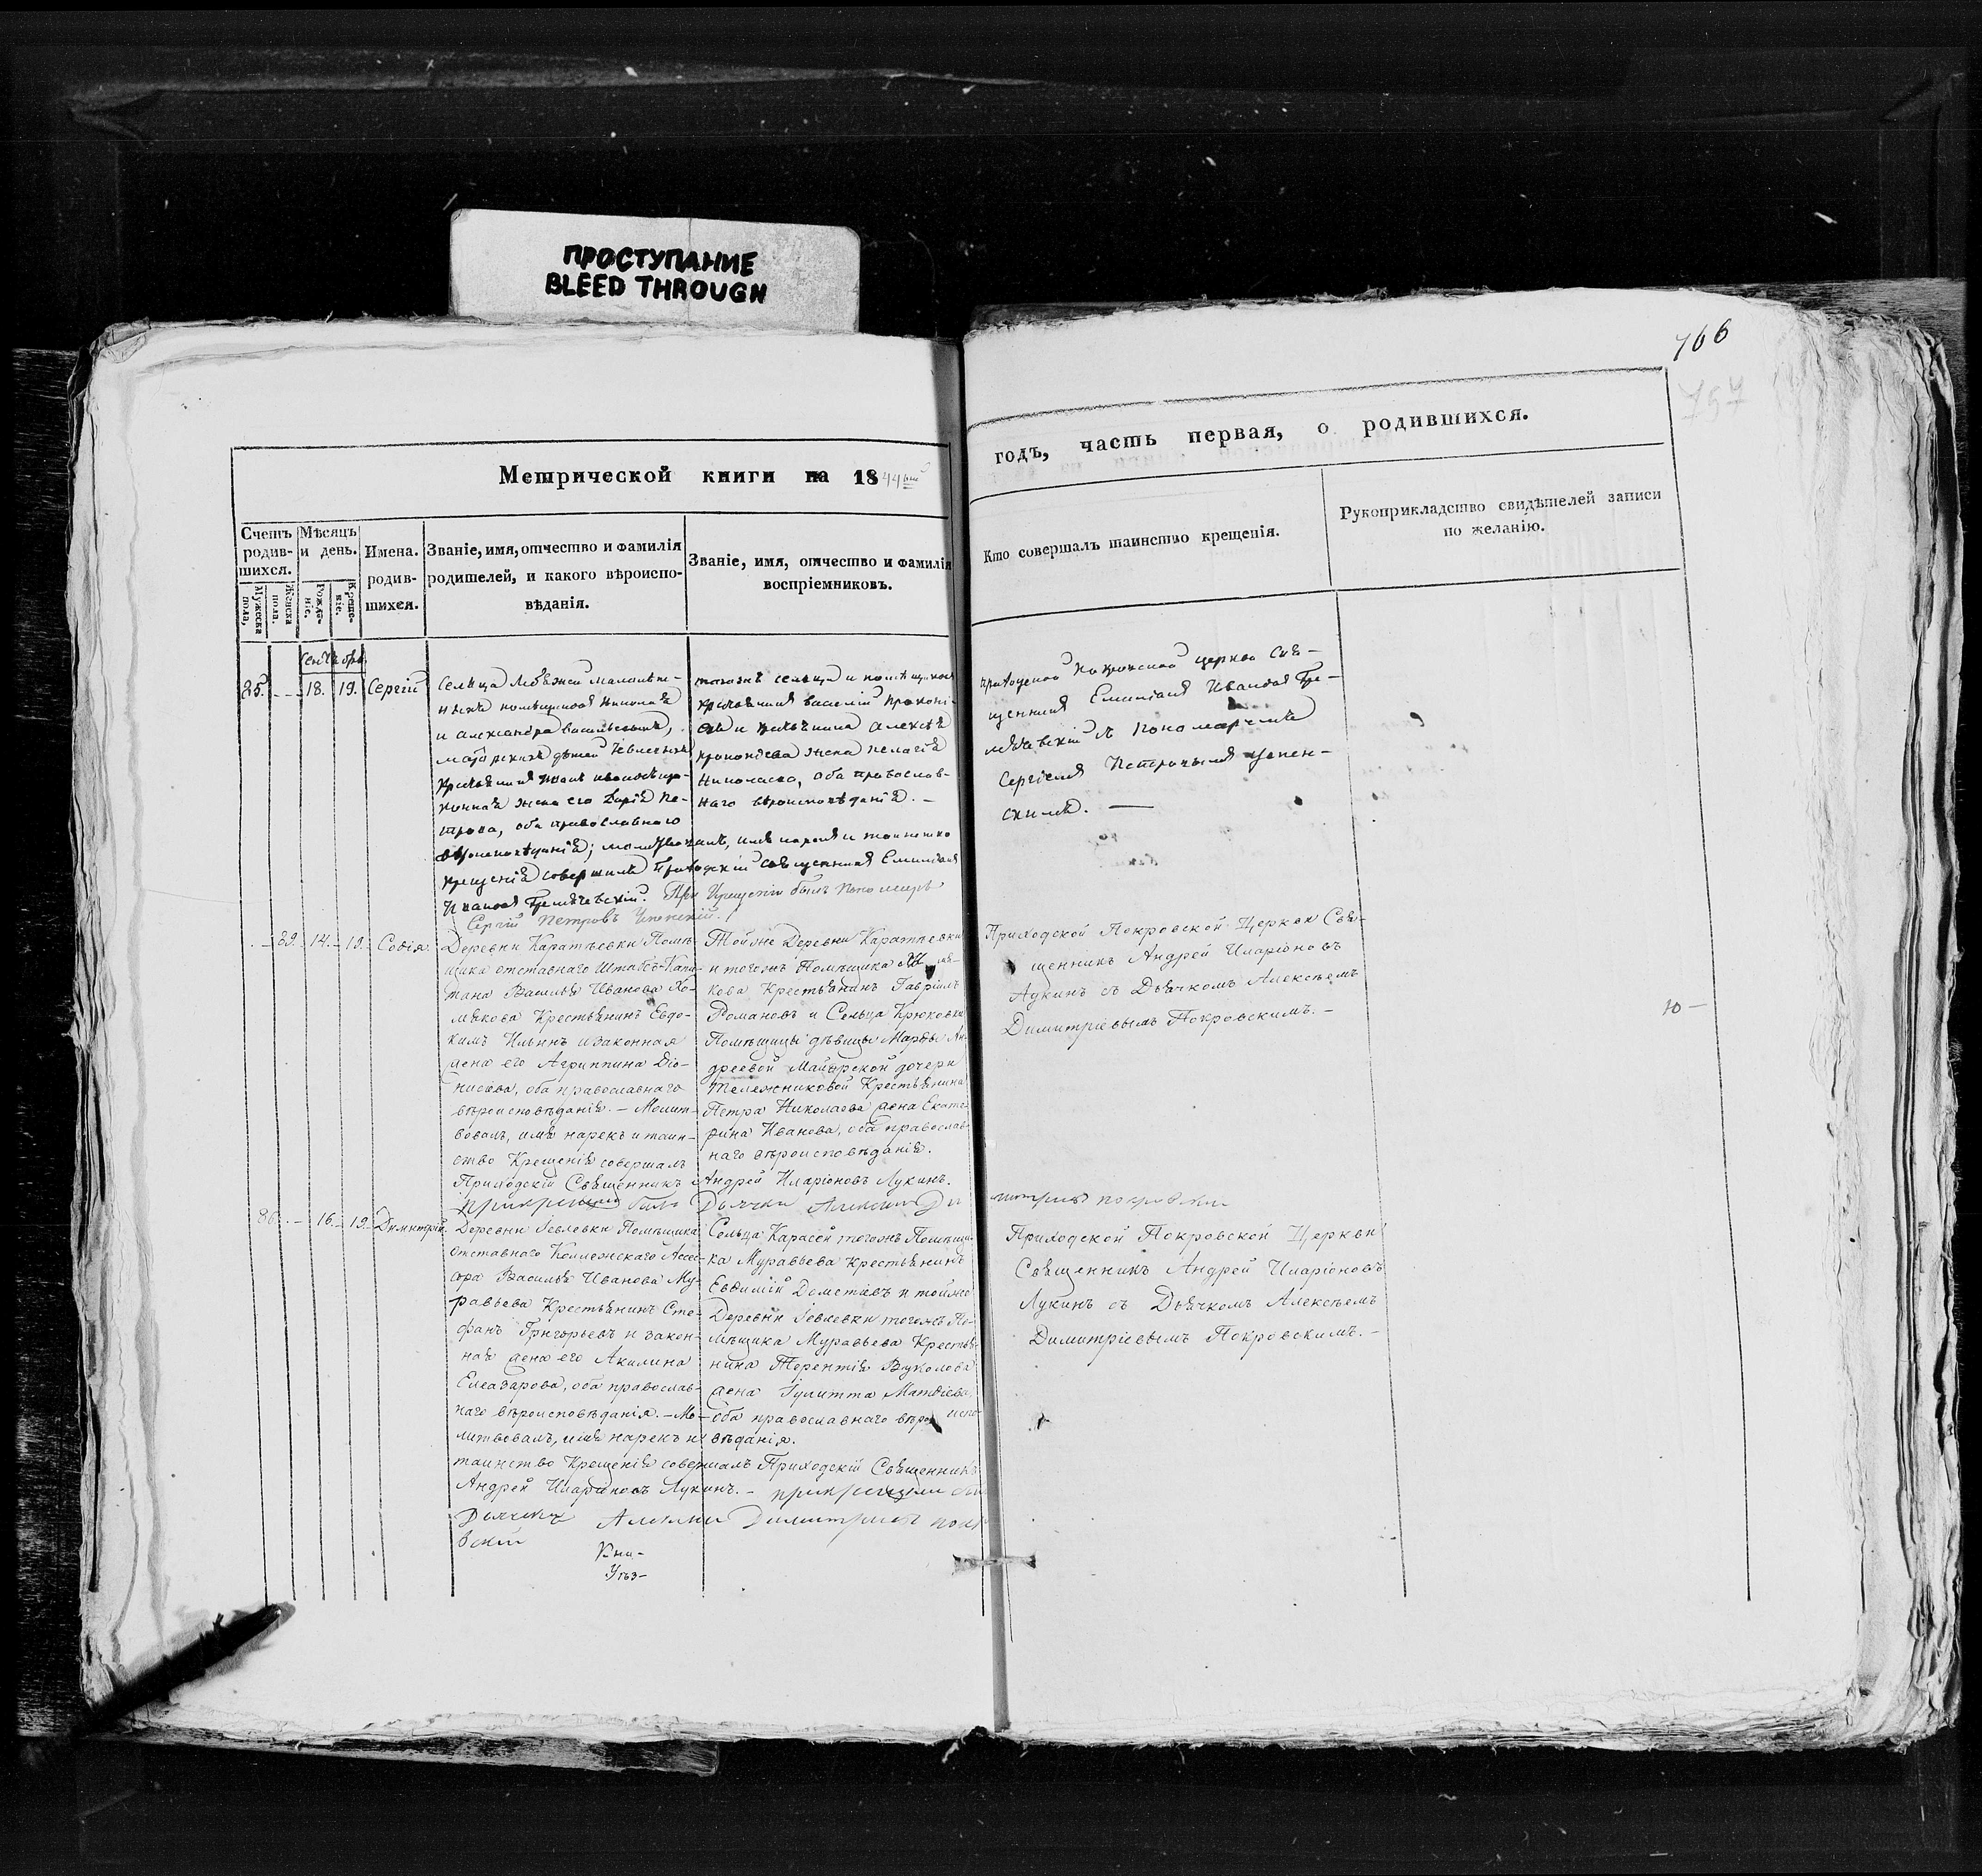 ПРОСТУПАНИЕ
BLEED THROUGH
766
757
Метрической книги на 1844ый
годъ, часть первая, о родившихся.
Счетъ родив-
шихся.
Мужеска пола,
Женска пола.
Мѣсяцъ
и день.
Рожде-
ніе.
Креще-
ніе.
Имена.
родив-
шихся.
Званіе, имя, отчество и фамилія
родителей, и какого вѣроиспо-
вѣданія.
Званіе, имя, отчество и фамилія
воспріемниковъ.
Кто совершалъ таинство крещенія.
Рукоприкладство свидѣтелей записи
по желанію.
Сентябрь
85. 18. 19. Сергій
Сельца малолѣт-
ныхъ помѣщиковъ Николая
и Александра Васильевыхъ,
дѣтей
жена его Дарія Пе-
трова, оба православнаго
вѣроисповѣданія; молитвовалъ, имя нарекъ и таинство
крещенія совершилъ Приходскій Священникъ Емиліанъ
Ивановъ Гремячевскій. При Крещеніи былъ Пономарь
Сергій Петровъ Успенскій.
тогожъ сельца и помѣщиковъ
крестьянинъ Василій Прокопі-
евъ и крестьянина Алексѣя
Прокопіева жена Пелагія
Николаева, оба православ-
наго вѣроисповѣданія. —
Приходской Покровской церкви Свя-
щенникъ Емиліанъ Ивановъ Гре-
мячевскій съ Пономаремъ
Сергіемъ Петровымъ Успен-
скимъ. —
89. 14. 19. Софія.
Деревни Каратѣевки Помѣ-
щика отставнаго Штабсъ-Капи-
тана Василья Иванова Хо-
мякова Крестьянинъ Евдо-
кимъ Ильинъ и законная
жена его Агриппина Діо-
нисіева, оба православнаго
вѣроисповѣданія. — Молит-
вовалъ, имя нарекъ и таин-
ство Крещенія совершалъ
Приходскій Священникъ Андрей Иларіоновъ Лукинъ.
Той же Деревни Каратѣевки
и тогожъ Помѣщика
кова Крестьянинъ Гавріилъ
Романовъ и Сельца Крюковки
Помѣщицы дѣвицы Марѳы Ан-
дреевой Маіорской дочери
Тележниковой Крестьянина
Петра Николаева жена Екате-
рина Иванова, оба православ-
наго вѣроисповѣданія.
Приходской Покровской Церкви Свя-
щенникъ Андрей Иларіоновъ
Лукинъ съ Дьячкомъ Алексѣемъ
Димитріевымъ Покровскимъ. —
Ю —
86. — 16. 19. Димитрій.
Деревни Іевлевки Помѣщика
отставнаго Коллежскаго Ассес-
сора Василья Иванова Му-
равьева Крестьянинъ Сте-
фанъ Григорьевъ и закон-
ная жена его Акилина
Елеазарова, оба православ-
наго вѣроисповѣданія. — Мо-
литвовалъ, имя нарекъ и
таинство Крещенія совершалъ Приходскій Священникъ
Андрей Иларіоновъ Лукинъ. —
Сельца Карасей тогожъ Помѣщи-
ка Муравьева Крестьянинъ
Евѳимій Дометіевъ и той же
Деревни Іевлевки тогожъ По-
мѣщика Муравьева Крестья-
нина Терентія Вуколова
жена Іулитта Матвіева,
оба православнаго вѣроиспо-
вѣданія.
Приходской Покровской Церкви
Священникъ Андрей Иларіоновъ
Лукинъ съ Дьячкомъ Алексѣемъ
Димитріевымъ Покровскимъ. —
Кни-
Уѣз-